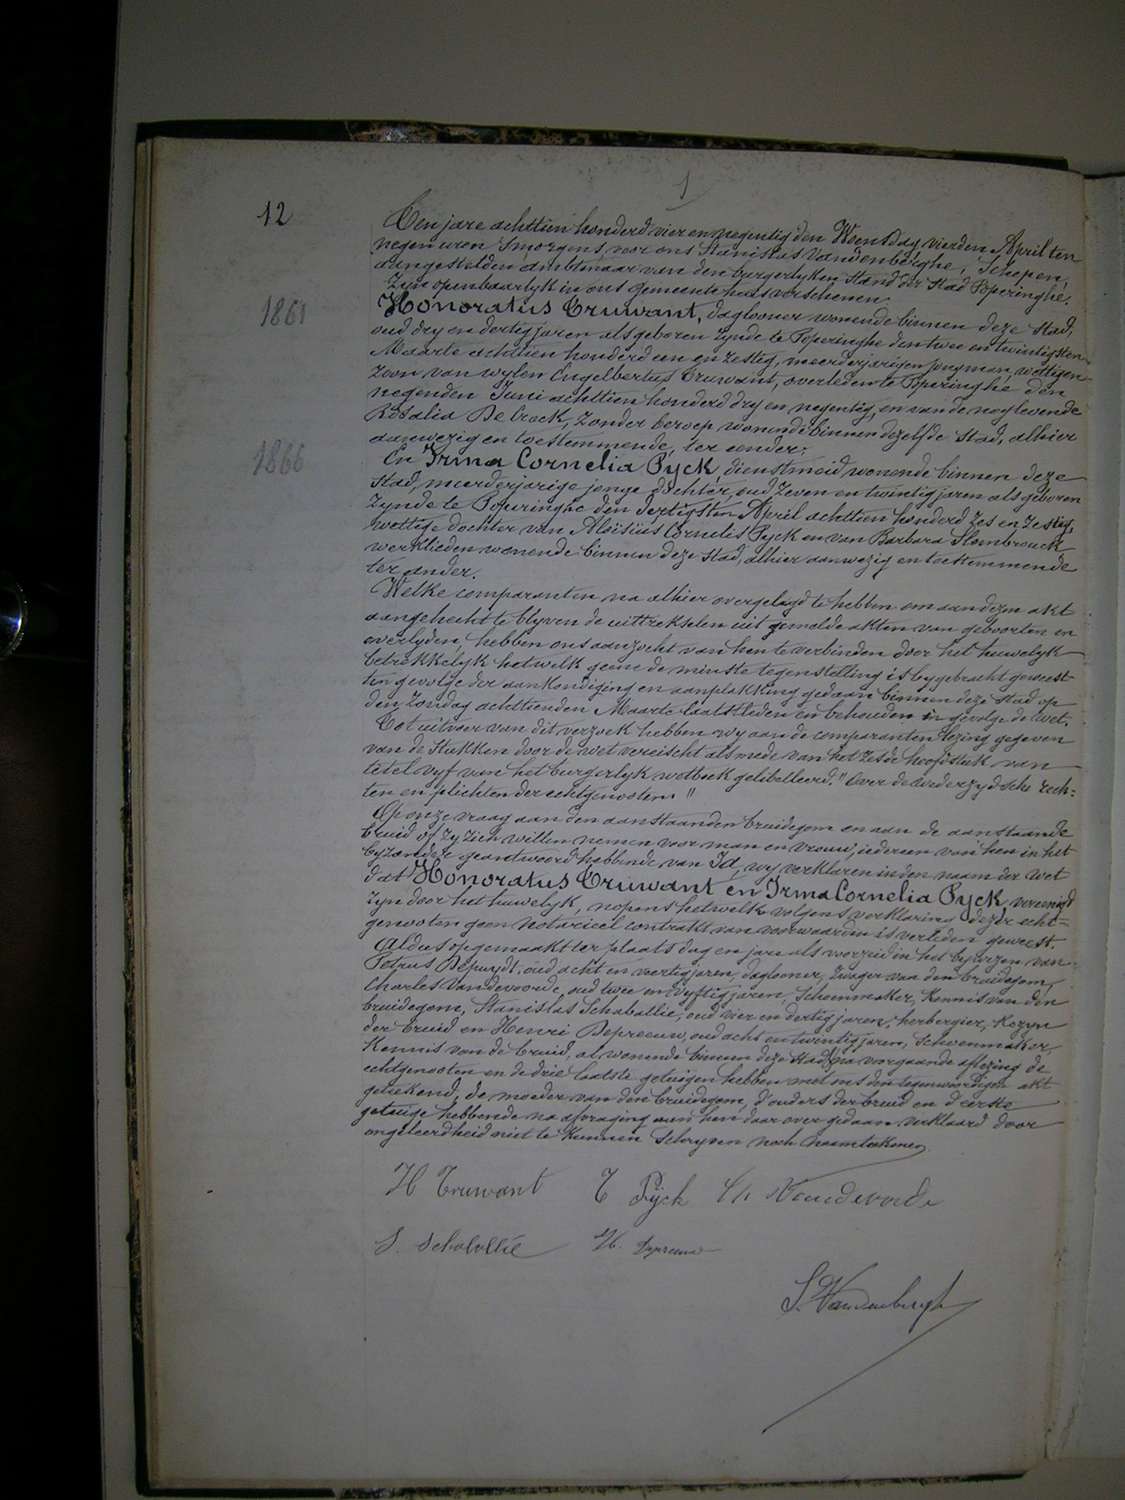 1
12
Ten jare achttien honderd vier en negentig den Woensdag vierden April ten
negen uren smorgens, voor ons Stanislas Vandenberghe, Schepen,
aangestelden ambtenaar van den burgerlyken Stand der Stad Poperinghe,
Zyn openbaarlyk in ons gemeentehuis verschenen
1861
Honoratus Truwant, dagloner wonende binnen deze stad,
oud dry en dertig jaren als geboren zynde te Poperinghe den twee en twintigsten
Maarte achttien honderd een en zestig, meerderjarigen jongman, wettigen
zoon van wylen Engelbertus Truwant, overleden te Poperinghe den
negenden Juni achttien honderd dry en negentig, en van de noglevende
Rosalia De Crock, zonder beroep wonende binnen dezelfde stad, alhier
aanwezig en toestemmende, ter eender;
1866
En Irma Cornelia Pyck, dienstmeid, wonende binnen deze
stad, meerderjarige jonge dochter, oud zeven en twintig jaren als geboren
zynde te Poperinghe den dertigsten April achttien honderd zes en zestig,
wettige dochter van Aloïsius Cornelis Pyck en van Barbara Slembrouck
werklieden wonende binnen deze stad, alhier aanwezig en toestemmende
ter ander.
Welke comparanten na alhier overgelegd te hebben om aan dezen akt
aangehecht te blyven de uittreksels uit gemelde akten van geboorten en
overlyden, hebben ons aanzocht van hen te verbinden door het huwelyk
betrekkelyk hetwelk geene de minste tegenstelling is bygebracht geweest
ten gevolge der aankondiging en aanplakking gedaan binnen deze stad op
den Zondag achttienden Maarte laatstleden en behouden in gevolge de wet.
Tot uitvoer van dit verzoek hebben wy aan de comparanten lezing gegeven
van de stukken door de wet vereischt alsmede van het zesde hoofdstuk van
titel vyf van het burgerlyk wetboek gelibelleerd: "Over de wederzydsche rech=
ten en plichten der echtgenooten"
Op onze vraag aan den aanstaanden bruidegom en aan de aanstaande
bruid of zy zich willen nemen voor man en vrouw, iedereen van hen in het
byzonder geantwoord hebbende van Ja, wy verklaren in den naam der Wet
dat Honoratus Truwant en Irma Cornelia Pyck, vereenigd
zyn door het huwelyk, nopens hetwelk volgens verklaring dezer echt=
genooten geen notarieel contrakt van voorwaarden is verleden geweest.
Aldus opgemaakt ter plaats dag en jare als voorzeid in het bywezen van
Petrus Depuydt, oud acht en veertig jaren, dagloner, zwager van den bruidegom,
Charles Vandevoorde, oud twee en vyftig jaren, Schoenmaker, Kennis van den
bruidegom, Stanislas Schaballie, oud vier en dertig jaren, herbergier, Kozyn
der bruid en Henri Depreeuw, oud acht en twintig jaren, Schoenmaker,
Kennis van de bruid, al wonende binnen deze stad, na voorgaande aflezing de
echtgenooten en de drie laatste getuigen hebben met ons den tegenwoordigen akt
geteekend, de moeder van den bruidegom, d'ouders der bruid en d'eerste
getuige hebbende na afvraging aan hen daar over gedaan verklaard door
ongeleerdheid niet te kunnen schryven noch naamteekenen.
H Truwant   C Pyck   Ch Vandevoorde
S. Schaballie   H. Depreeuw
S. Vandenbergh